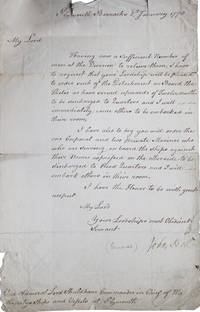 Plymouth Barracks 6th January 1778
My Lord
Having now a sufficient Number of
men at this Division to relieve them, I have
to request that your Lordship will be pleased
to order such of the Detachment on Board the
as have served upwards of Twelvemonths
to be discharged to Quarters and I will
immediately cause others to be embarked in
their room.
I have also to beg you will order the
one Corporal and two Private Marines who
who are serving on board the ships against
their Names expressed on the otherside, to be
discharged to Head Quarters and I will
embark others in their room.
I have the Honor to be with great
respect
My Lord
Your Lordships most Obedient
Servant
(Signed) John
Admiral Lord Shuldham Commander in Chief of His
Majestys Ships and Vessels at Plymouth